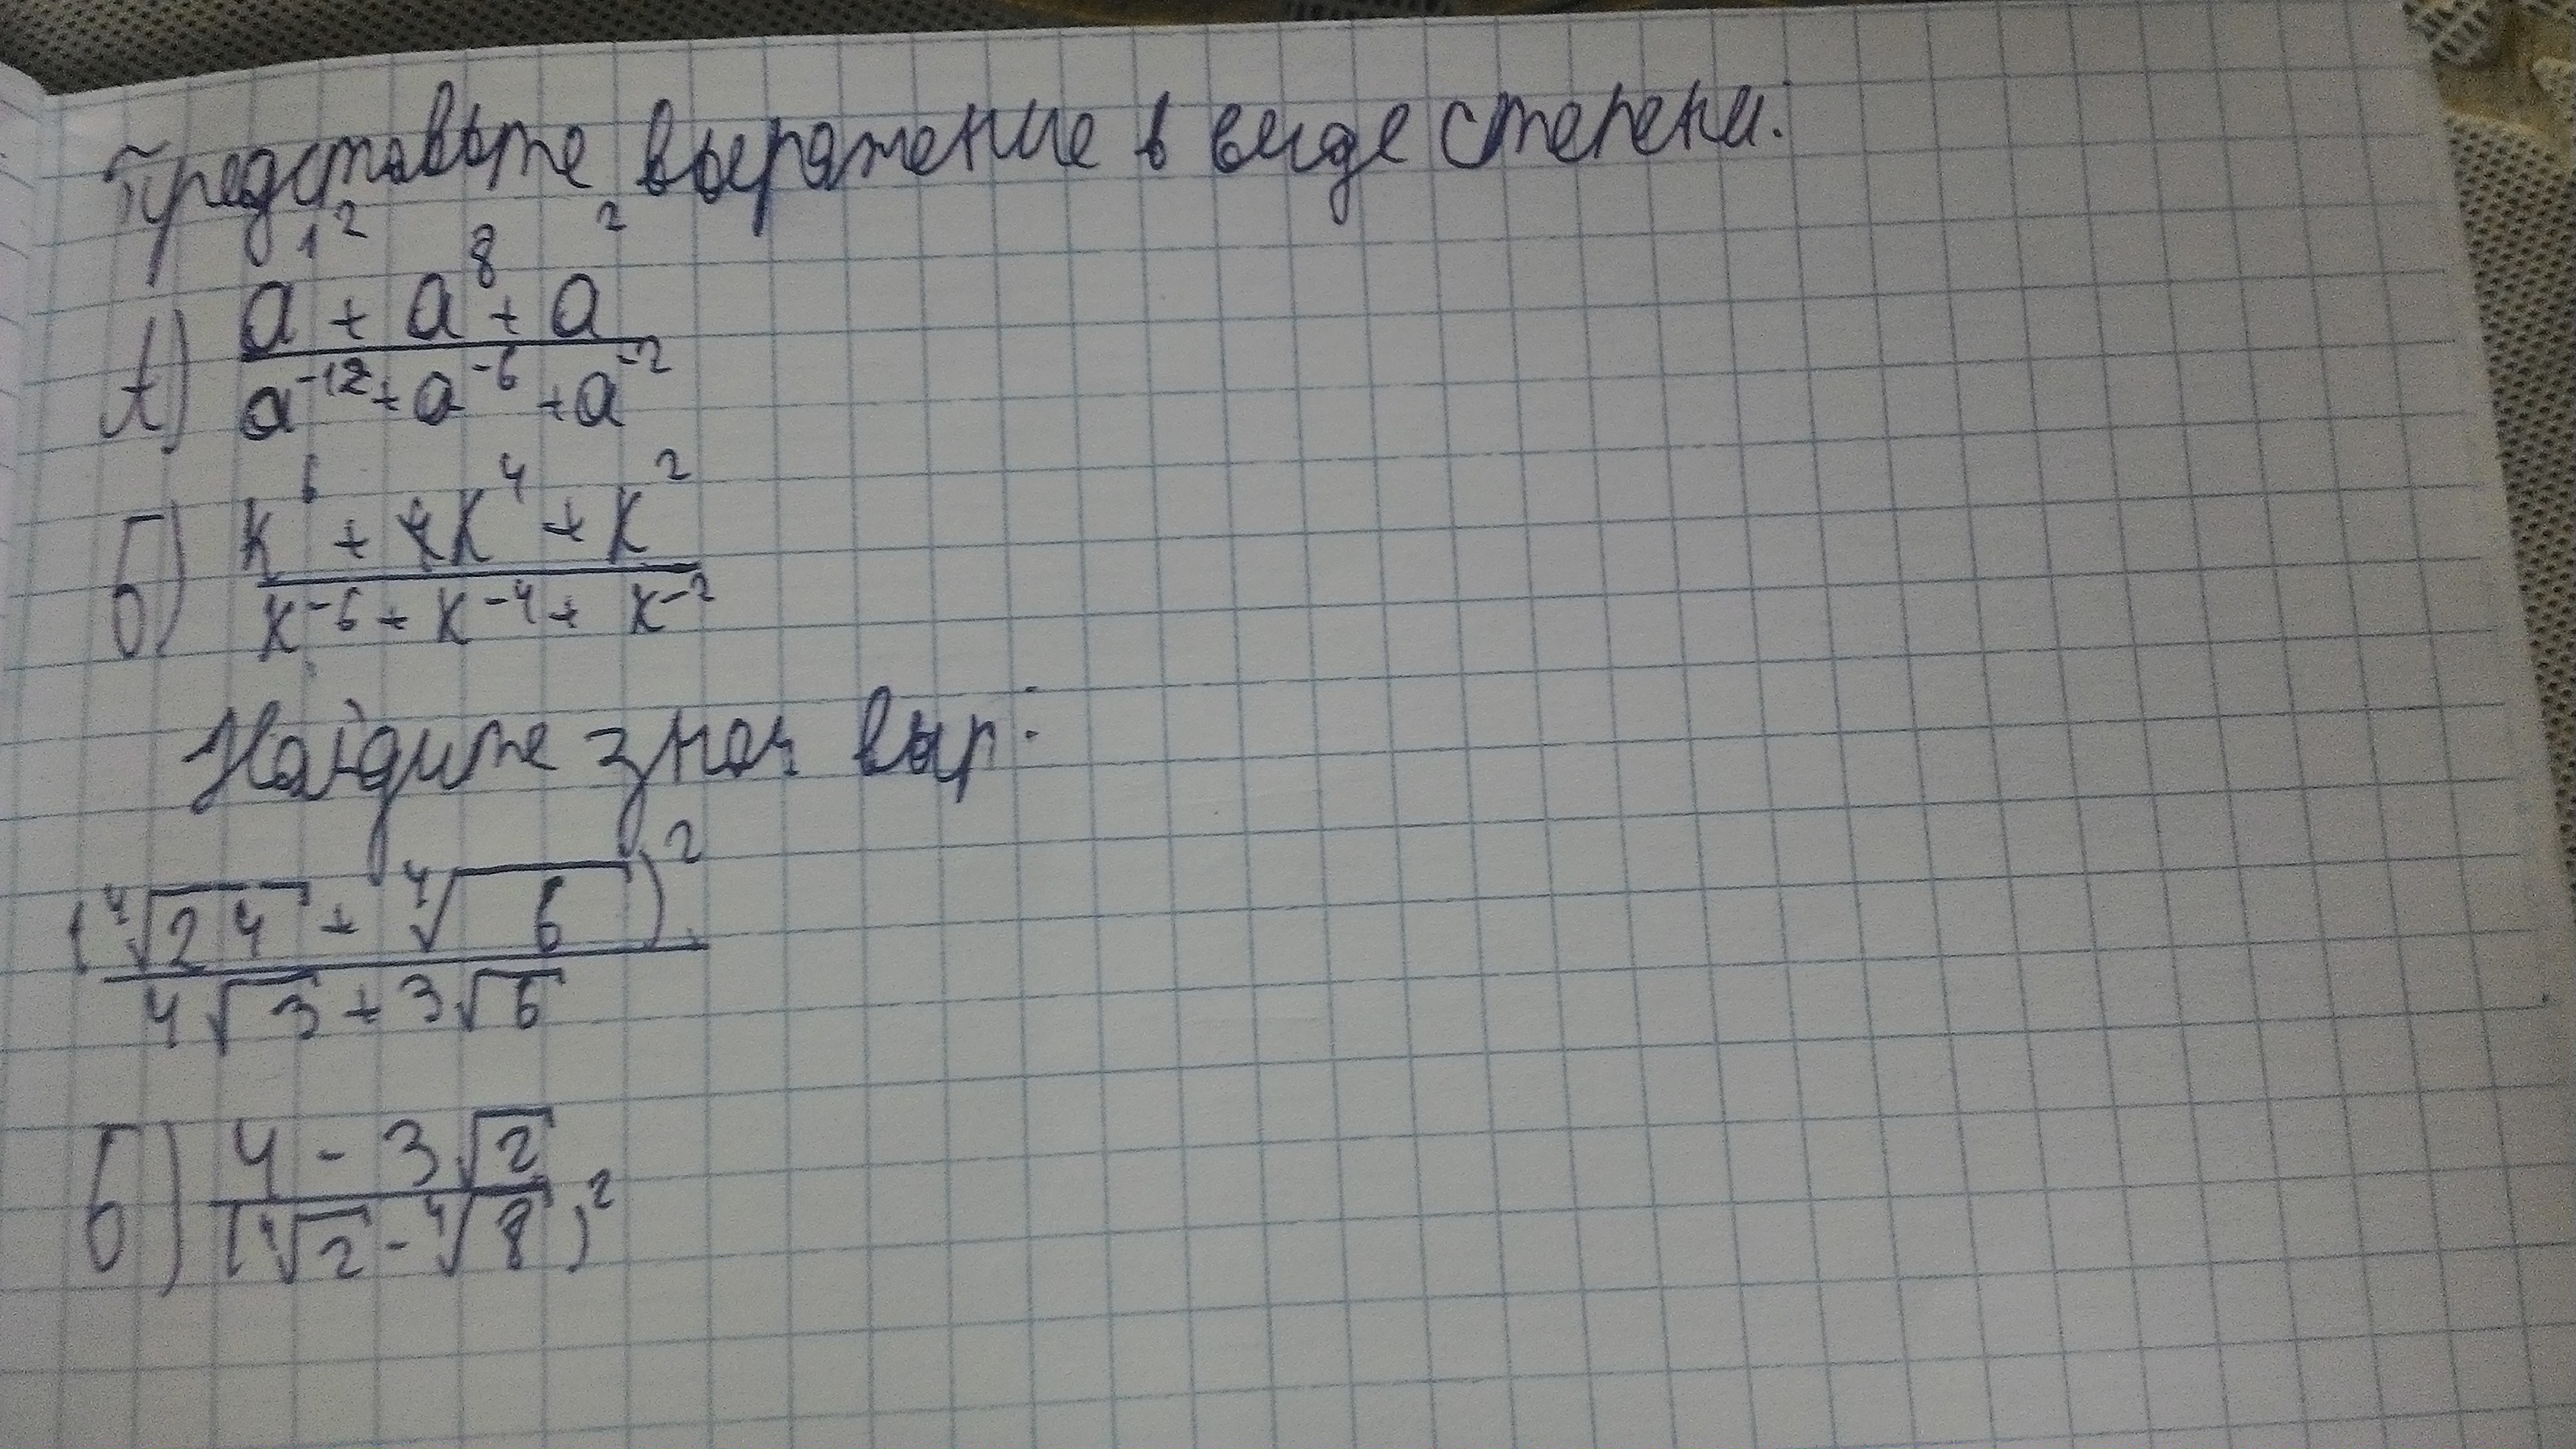 Представьте выражение в виде степени:
А) (a¹² + a⁸ + a²)/(a⁻¹² + a⁻⁶ + a⁻²)
Б) (k⁶ + k⁴ + k²)/(k⁻⁶ + k⁻⁴ + k⁻²)
Найдите знач выр:
(∜24 + ∜6)²/(4√3 + 3√6)
Б) (4 - 3√2)/(∜2 - ∜8)²